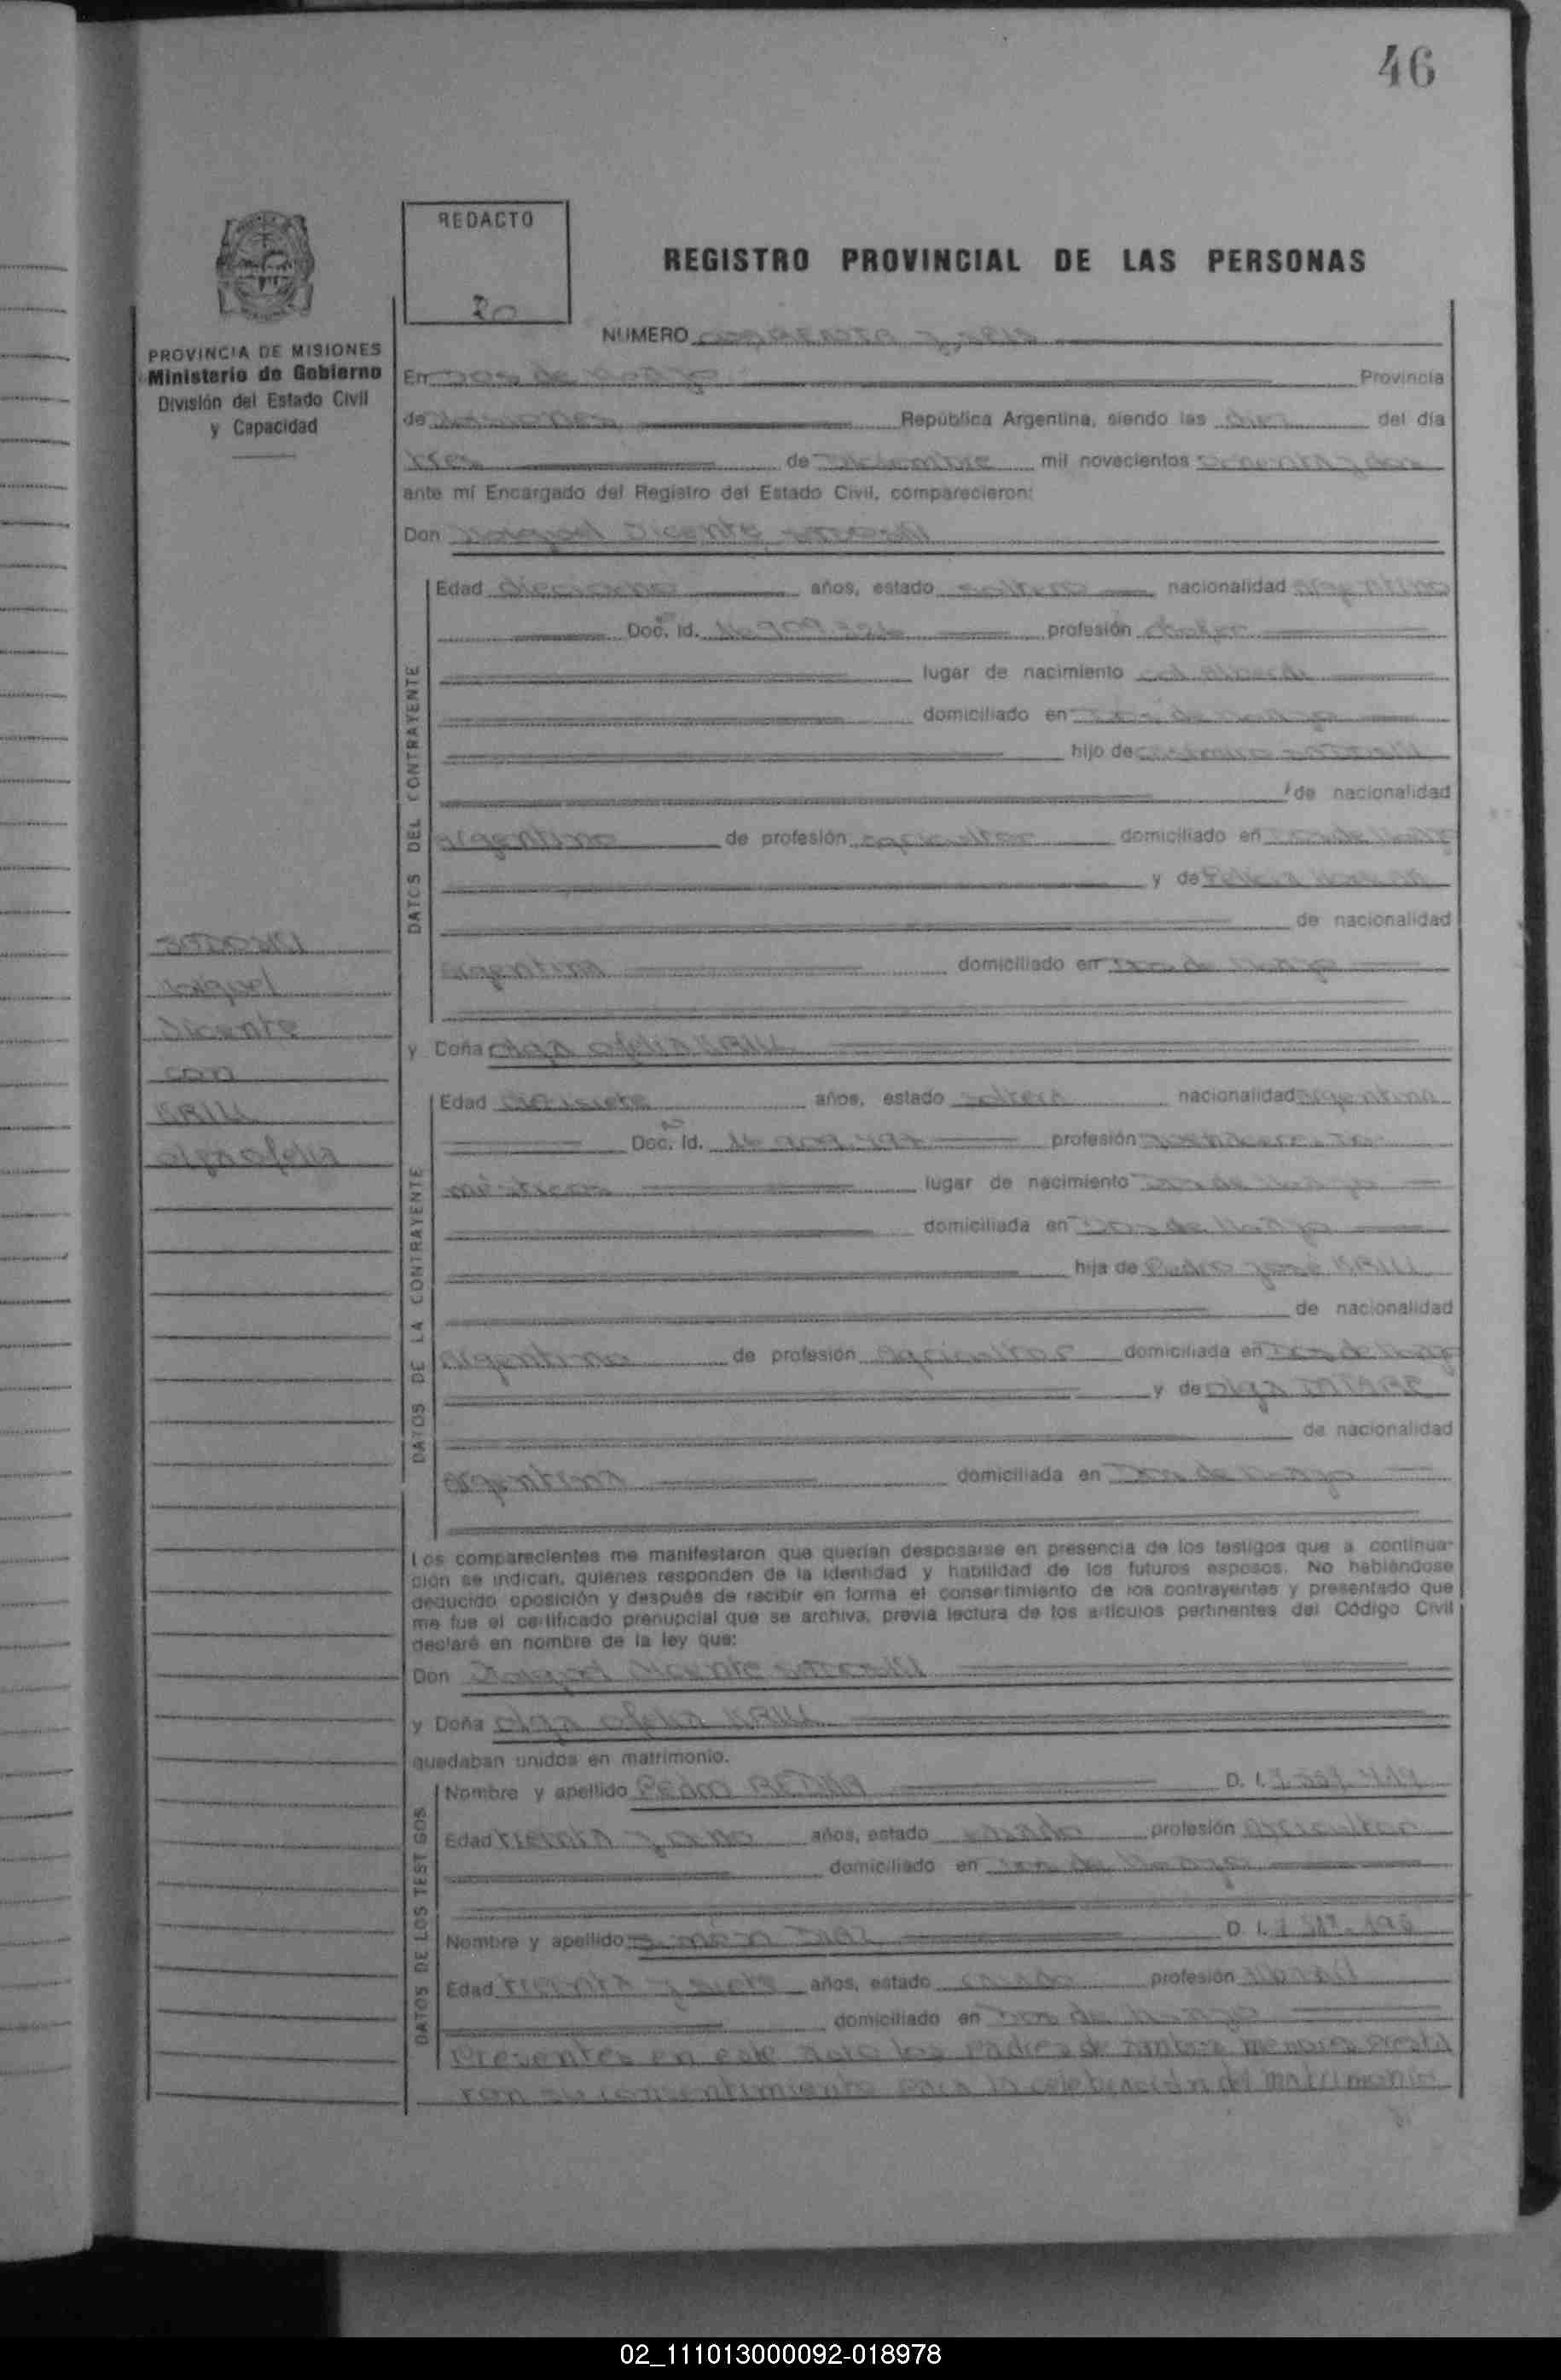 46
REDACTO
20
REGISTRO PROVINCIAL DE LAS PERSONAS
PROVINCIA DE MISIONES
Ministerio de Gobierno
División del Estado Civil
y Capacidad
NUMERO cuarenta y seis
En Dos de Mayo Provincia
de Misiones República Argentina, siendo las diez del día
tres de Diciembre mil novecientos ochenta y dos
ante mí Encargado del Registro del Estado Civil, comparecieron:
Don Miguel Vicente
DATOS DEL CONTRAYENTE
Edad dieciocho años, estado soltero nacionalidad argentino
Doc. Id. profesión chofer
lugar de nacimiento
domiciliado en Dos de Mayo
hijo de
de nacionalidad
argentino de profesión agricultor domiciliado en Dos de Mayo
y de
de nacionalidad
argentina domiciliado en Dos de Mayo
Miguel
Vicente
con
KRILL
olga ofelia
y Doña olga ofelia KRILL
DATOS DE LA CONTRAYENTE
Edad diecisiete años, estado soltera nacionalidad argentina
Doc. Id. profesión
domésticos lugar de nacimiento Dos de Mayo
domiciliada en Dos de Mayo
hija de Pedro José KRILL
de nacionalidad
argentino de profesión agricultor domiciliada en Dos de Mayo
y de olga
de nacionalidad
argentina domiciliada en Dos de Mayo
Los comparecientes me manifestaron que querían desposarse en presencia de los testigos que a continua-
ción se indican, quienes responden de la identidad y habilidad de los futuros esposos. No habiéndose
deducido oposición y después de recibir en forma el consentimiento de los contrayentes y presentado que
me fue el certificado prenupcial que se archiva, previa lectura de los artículos pertinentes del Código Civil
declaré en nombre de la ley que:
Don Miguel Vicente
y Doña olga ofelia KRILL
quedaban unidos en matrimonio.
DATOS DE LOS TESTIGOS
Nombre y apellido Pedro D. I.
Edad treinta y ocho años, estado casado profesión agricultor
domiciliado en Dos de Mayo
Nombre y apellido Simón DIAZ D. I.
Edad treinta y siete años, estado casado profesión
domiciliado en Dos de Mayo
Presentes en este acto los Padres de ambos menores presta
ron su consentimiento para la celebración del matrimonio
02_111013000092-018978